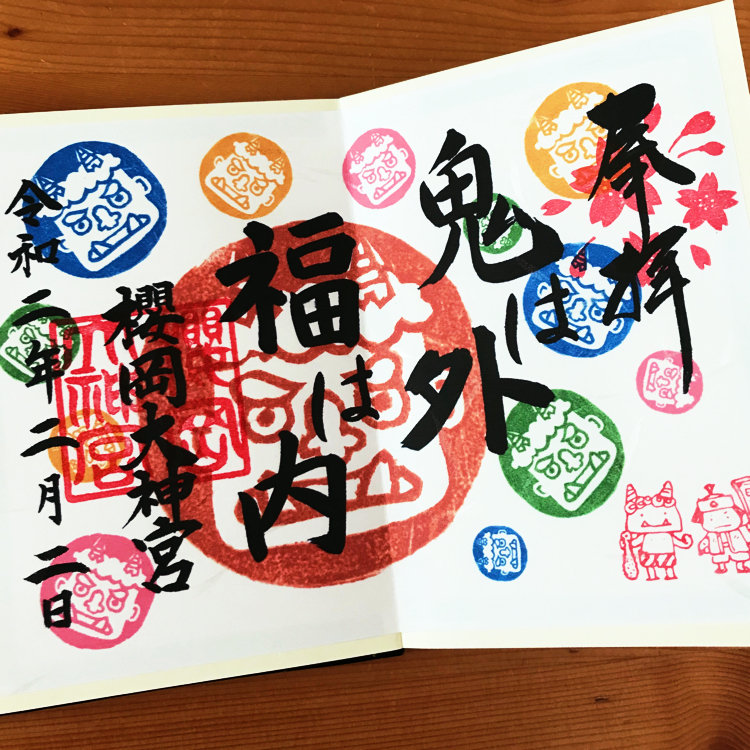 奉拝
鬼は外
福は内
櫻岡大神宮
令和二年二月二日